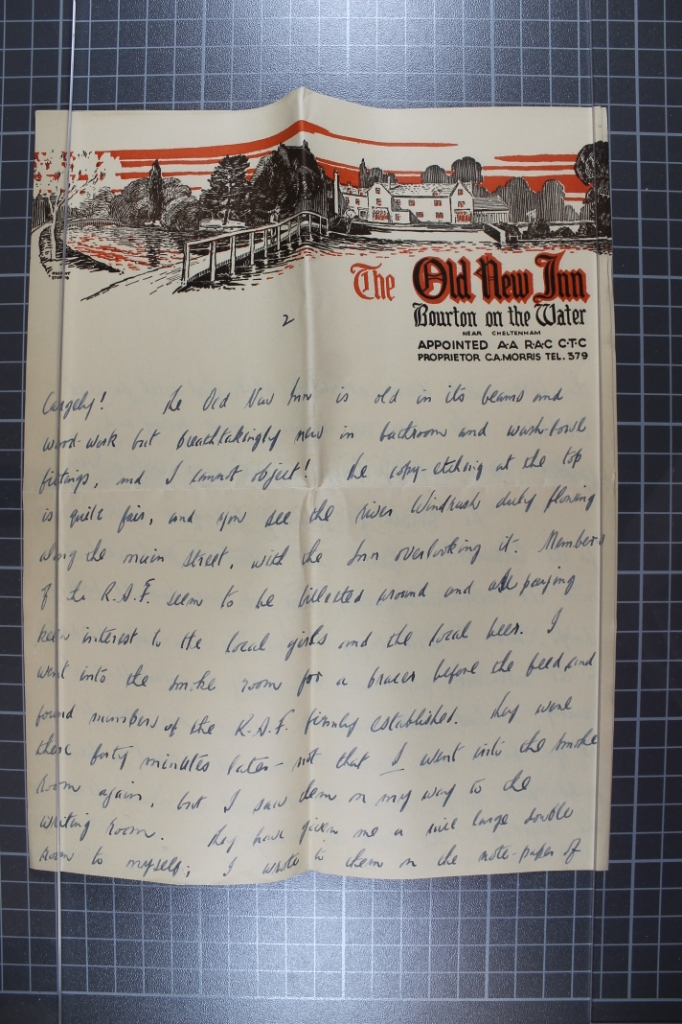 The Old New Inn
Bourton on the Water
NEAR CHELTENHAM
APPOINTED A·A R·A·C C·T·C
PROPRIETOR C.A.MORRIS TEL. 379
2
largely! The Old New Inn is old in its beams and
wood-work but breathtakingly new in bathroom and wash-bowl
fittings, and I cannot object! The copy-etching at the top
is quite fair, and you see the river Windrush duly flowing
along the main street, with the Inn overlooking it. Members
of the R.A.F. seem to be billeted around and all paying
keen interest to the local girls and the local beer. I
went into the smoke room for a bracer before the feed and
found members of the R.A.F. firmly established. They were
there forty minutes later – not that I went into the smoke
room again, but I saw them on my way to the
writing room. They have given me a nice large double
room to myself; I wrote to them on the note-paper of